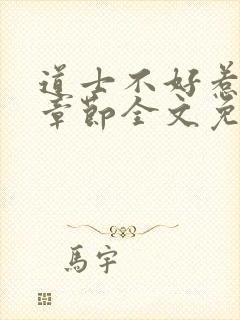 道士不好惹
章節全文免
馬宇